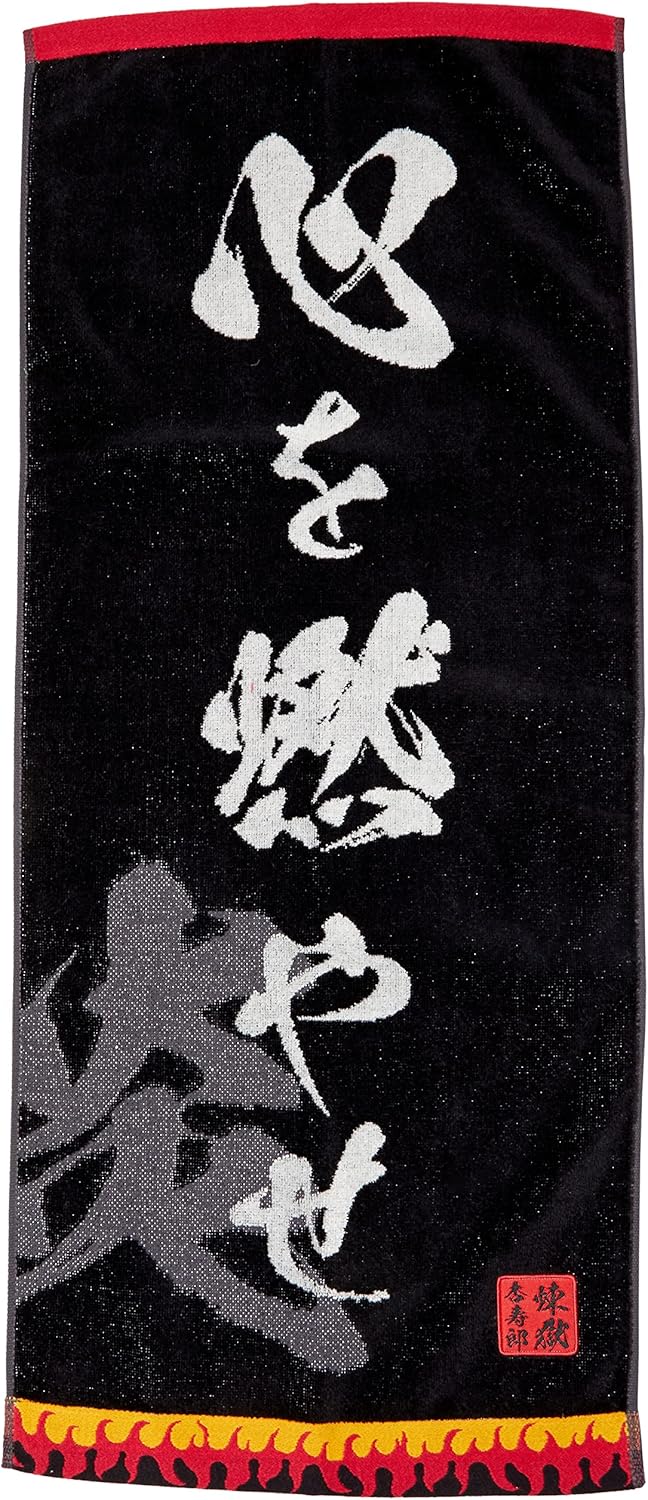 心を燃やせ
炎
煉獄
杏寿郎